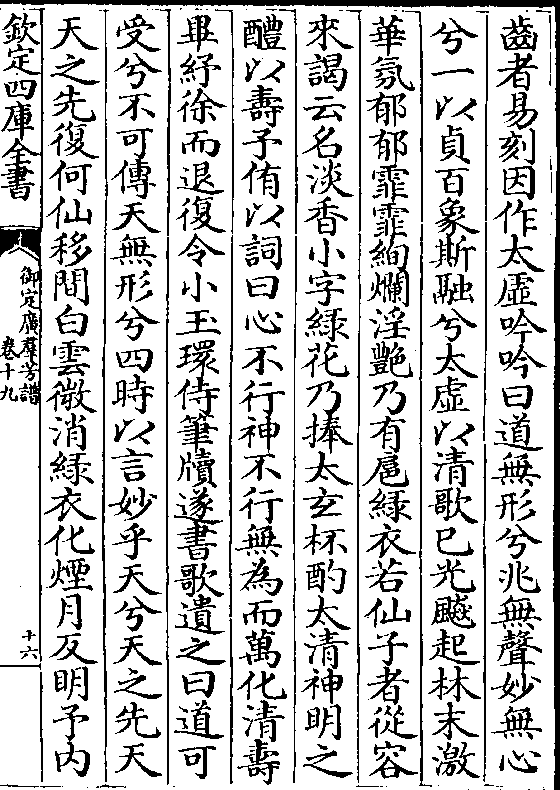 齒者易刻因作太虛吟吟曰道無形兮兆無聲妙無心
兮一以貞百象斯融兮太虛以清歌已光飈起林末激
華氛郁郁霏霏絢爛淫艷乃有扈綠衣若仙子者從容
來謁云名淡香小字綠花乃捧太玄杯酌太清神明之
醴以壽予侑以詞曰心不行神不行無為而萬化清壽
畢紓徐而退復令小玉環侍筆牘遂書歌遺之曰道可
受兮不可傳天無形兮四時以言妙乎天兮天之先天
天之先復何仙移閒白雲微消綠衣化煙月反明予内
欽定四庫全書
御定廣群芳譜
卷十九
十六